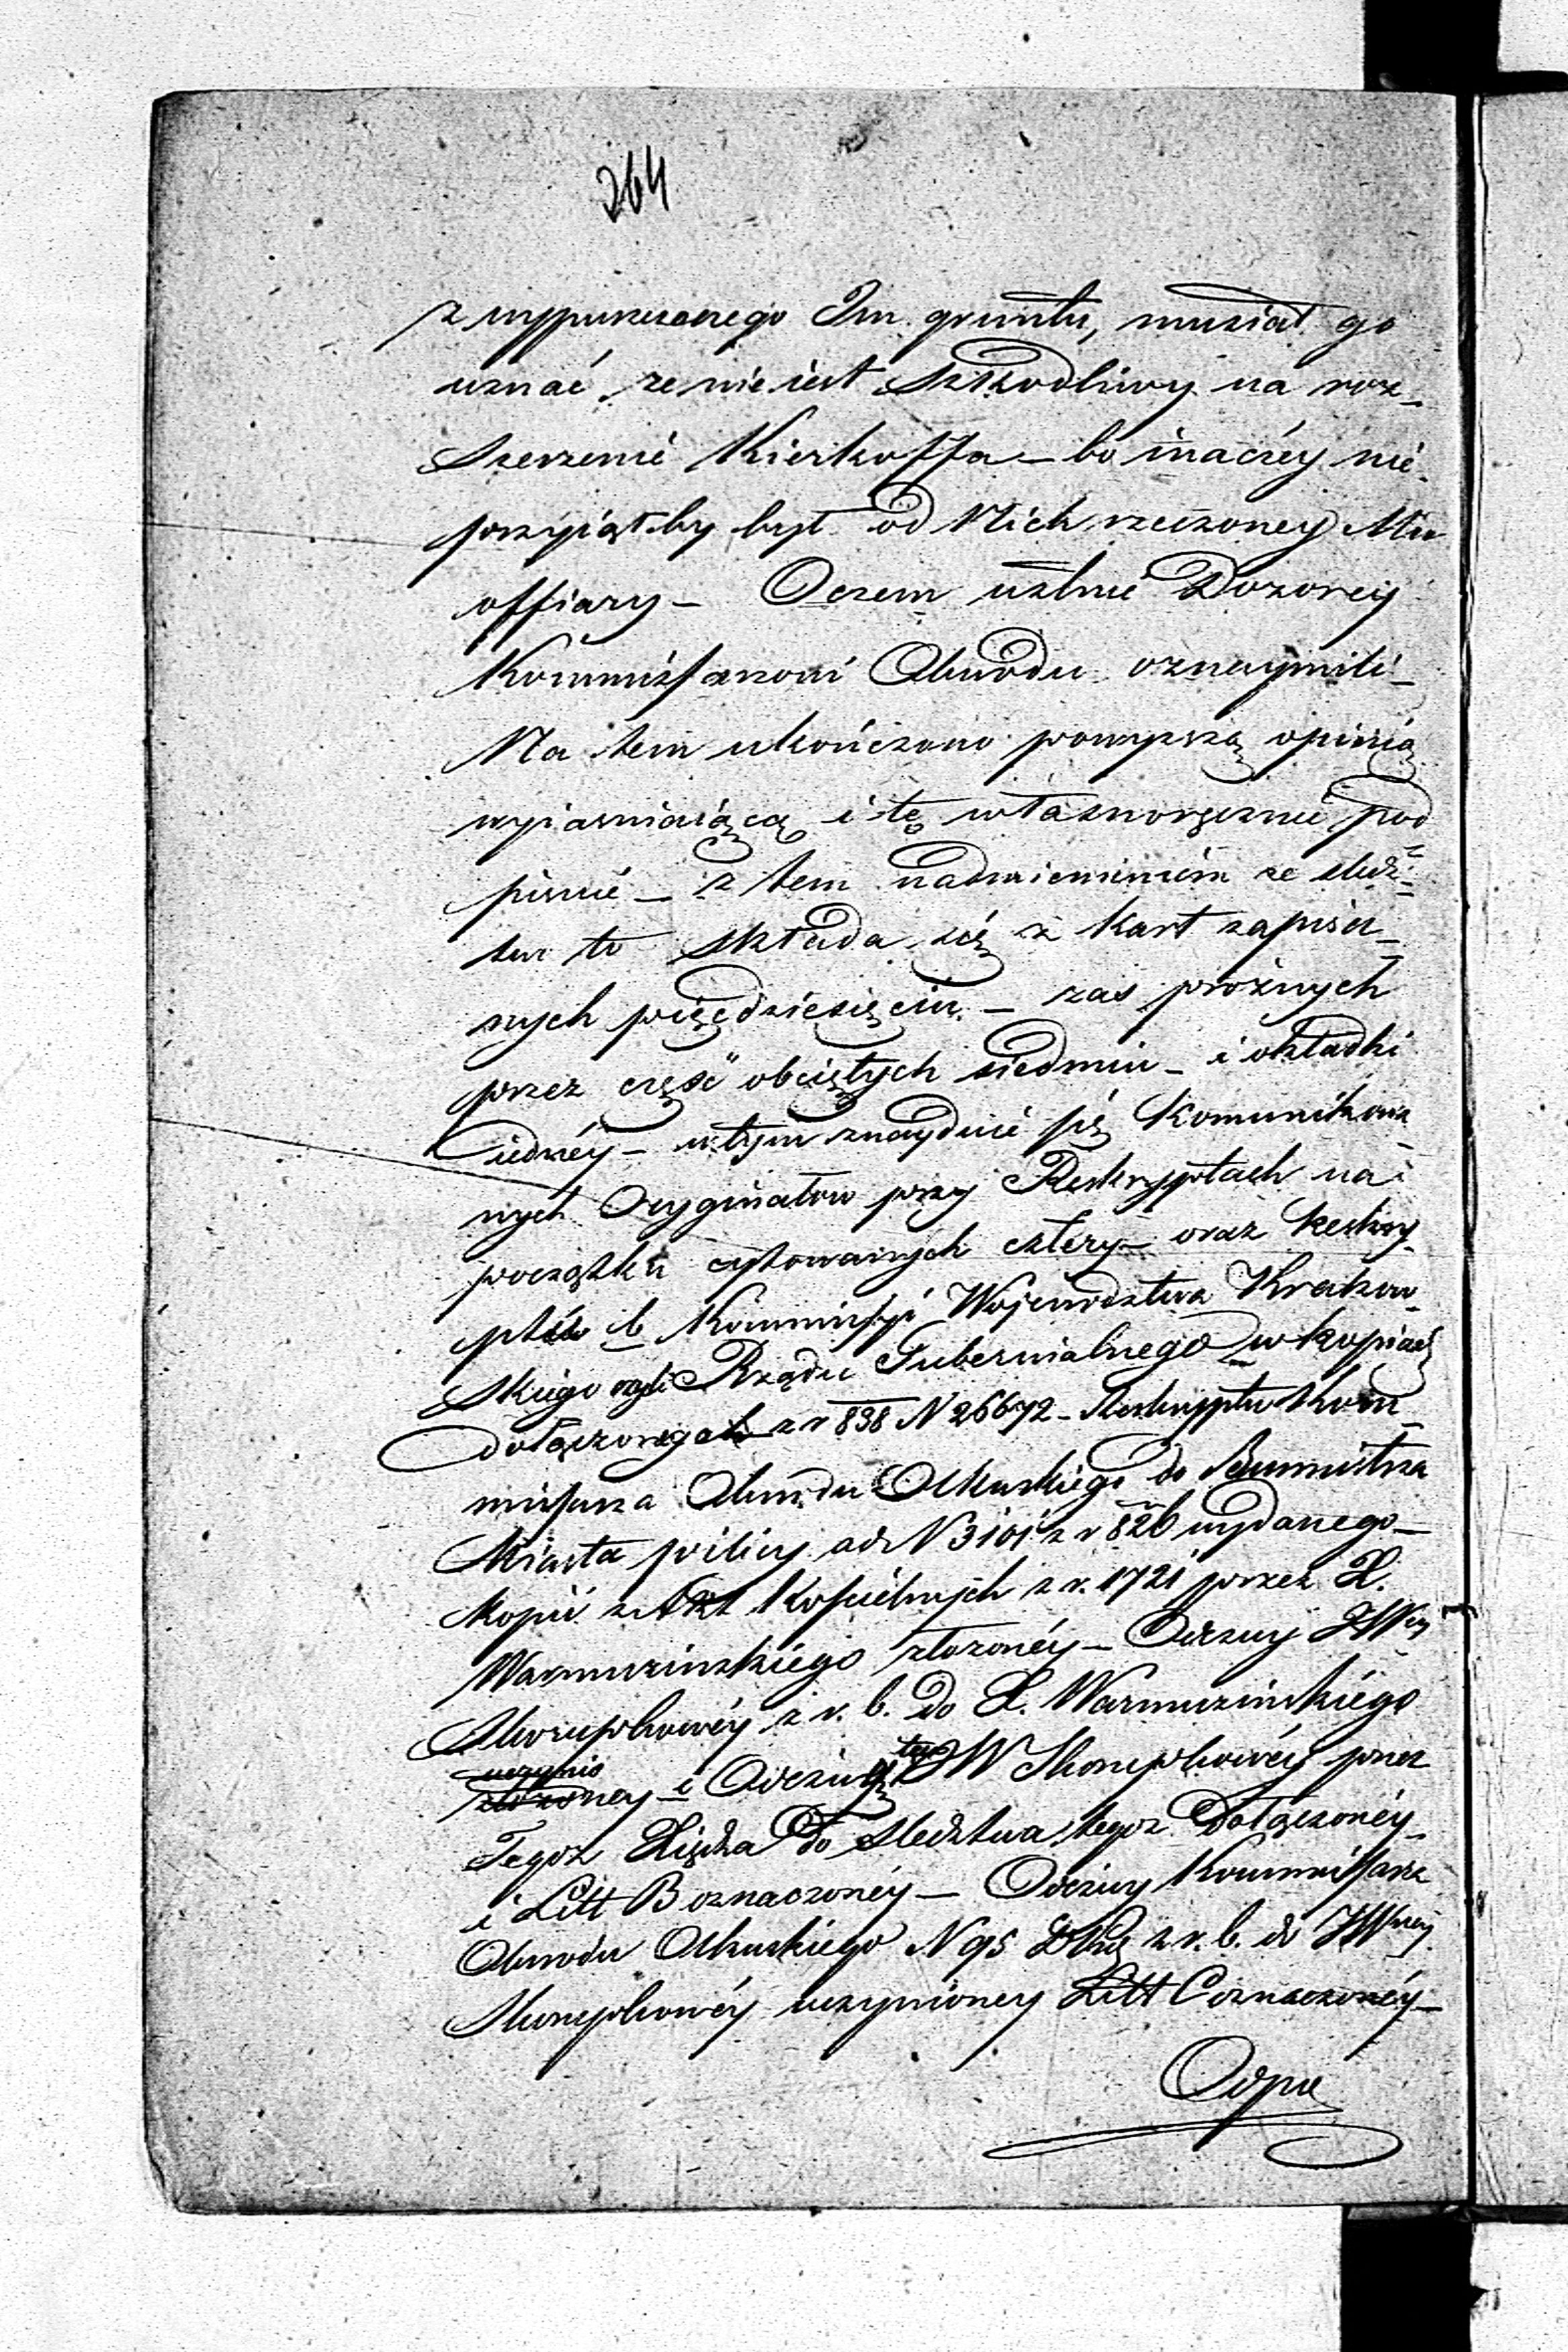 264
z wypuszczonego Im gruntu, musiał go
uznać że nie iest Szkodliwy na roz_
Szerzenie Kierkoffa – bo inaczéy nie
przyiąłby był od Nich rzeczoney
offiary – Oczem ustnie Dozorcy
Kommissarzowi Obwodu oznaymili –
Na tem ukończono powyższą opinią
wyiaśniaiącą i tę własnoręcznie pod
pisuie – z tem nadmienieniem że Śledz_
two to składa się z kart zapisa_
nych pięćdziesięciu – zas próżnych
przez część obciętych siedmiu – i okładki
iednéy – w tym znayduie się Komunikowa
nych Oryginałow przy Reskryptach na
początku cytowanych cztery – oraz Reskry_
ptów b Kommissyi Województwa Krakow_
Skiego Rządu Gubernialnego w kopiach
dołączonych z r 838 N 26672 – Reskryptu Kom_
missarza Obwodu Olkuskiego do Burmistrza
Miasta Pilicy ad N 3101 z r 826 wydanego –
Kopii z Akt Kościelnych z r. 1721 przez X.
Warmuzinskiégo złożonéy – Odezwy JW
Skorupkowéy z r. b. do X. Warmuzinskiégo
uczynio
złożoney – i Odezwy teyże JW Skorupkowéy przez
Tegoż Xiędza do Śledztwa tegoż Dołączonéy –
i Litt B oznaczonéy – Odezwy Kommissarza
Obwodu Olkuskiego N 95 z r. b. do JWney
Skorupkowéy uczynioney Litt C oznaczonéy –
Odpis